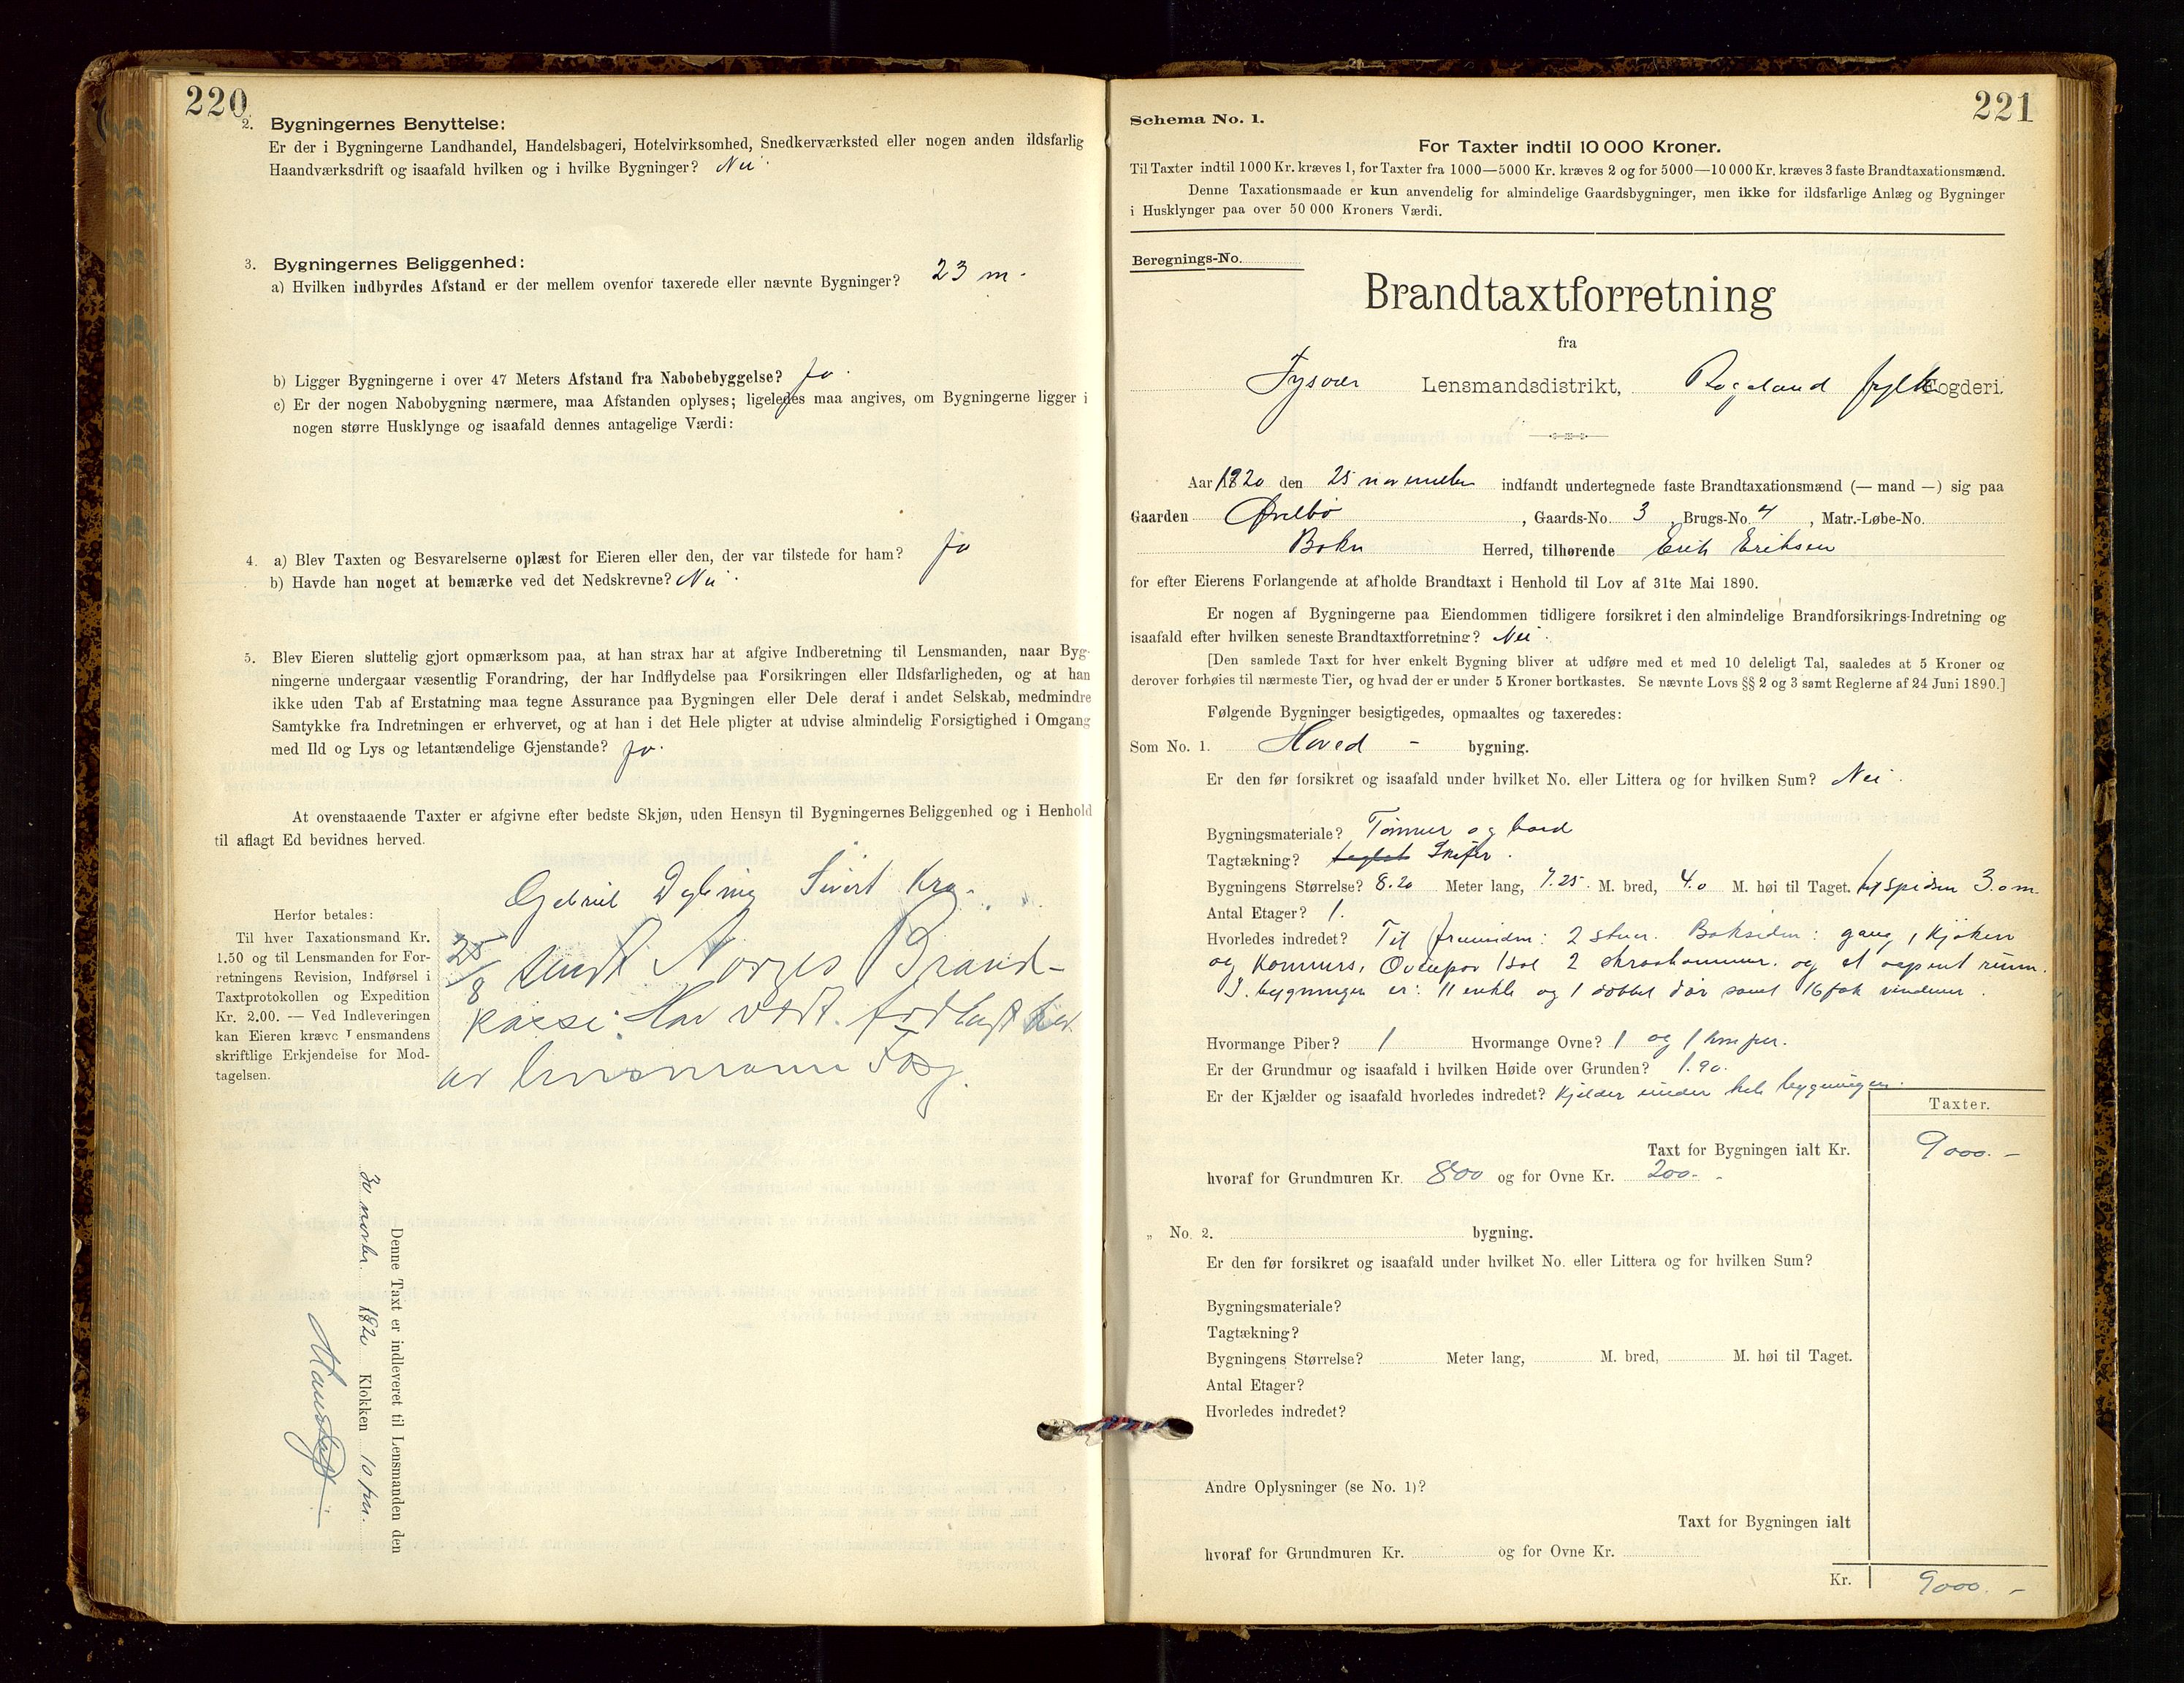 220
2. Bygningernes Benyttelse:
Er der i Bygningerne Landhandel, Handelsbageri, Hotelvirksomhed, Snedkerværksted eller nogen anden ildsfarlig
Haandværksdrift og isaafald hvilken og i hvilke Bygninger? Nei
3. Bygningernes Beliggenhed:
a) Hvilken indbyrdes Afstand er der mellem ovenfor taxerede eller nævnte Bygninger? 23 m.
b) Ligger Bygningerne i over 47 Meters Afstand fra Nabobebyggelse? Ja.
c) Er der nogen Nabobygning nærmere, maa Afstanden oplyses; ligeledes maa angives, om Bygningerne ligger i
nogen større Husklynge og isaafald dennes antagelige Værdi:
4. a) Blev Taxten og Besvarelserne oplæst for Eieren eller den, der var tilstede for ham? Ja
b) Havde han noget at bemærke ved det Nedskrevne? Nei.
5. Blev Eieren sluttelig gjort opmærksom paa, at han strax har at afgive Indberetning til Lensmanden, naar Byg-
ningerne undergaar væsentlig Forandring, der har Indflydelse paa Forsikringen eller Ildsfarligheden, og at han
ikke uden Tab af Erstatning maa tegne Assurance paa Bygningen eller Dele deraf i andet Selskab, medmindre
Samtykke fra Indretningen er erhvervet, og at han i det Hele pligter at udvise almindelig Forsigtighed i Omgang
med Ild og Lys og letantændelige Gjenstande? Ja.
At ovenstaaende Taxter er afgivne efter bedste Skjøn, uden Hensyn til Bygningernes Beliggenhed og i Henhold
til aflagt Ed bevidnes herved.
Gabriel Sivert
Herfor betales:
Til hver Taxationsmand Kr.
1.50 og til Lensmanden for For-
retningens Revision, Indførsel i
Taxtprotokollen og Expedition
Kr. 2.00. — Ved Indleveringen
kan Eieren kræve Lensmandens
skriftlige Erkjendelse for Mod-
tagelsen.
25/8 sendt Norges Brand-
kasse. Har vært
av lensmann
Denne Taxt er indleveret til Lensmanden den
30 novbr. 1820 Klokken 10 fm.
221
Schema No. 1.
For Taxter indtil 10 000 Kroner.
Til Taxter indtil 1000 Kr. kræves 1, for Taxter fra 1000—5000 Kr. kræves 2 og for 5000—10 000 Kr. kræves 3 faste Brandtaxationsmænd.
Denne Taxationsmaade er kun anvendelig for almindelige Gaardsbygninger, men ikke for ildsfarlige Anlæg og Bygninger
i Husklynger paa over 50 000 Kroners Værdi.
Beregnings-No.
Brandtaxtforretning
fra
Tysvær Lensmandsdistrikt, Rogaland fylke Fogderi.
Aar 1820 den 25 november indfandt undertegnede faste Brandtaxationsmænd (— mand —) sig paa
Gaarden Øvrebø, Gaards-No. 3, Brugs-No. 4, Matr.-Løbe-No.
Bokn Herred, tilhørende Erik Eriksen
for efter Eierens Forlangende at afholde Brandtaxt i Henhold til Lov af 31te Mai 1890.
Er nogen af Bygningerne paa Eiendommen tidligere forsikret i den almindelige Brandforsikrings-Indretning og
isaafald efter hvilken seneste Brandtaxtforretning? Nei.
[Den samlede Taxt for hver enkelt Bygning bliver at udføre med et med 10 deleligt Tal, saaledes at 5 Kroner og
derover forhøies til nærmeste Tier, og hvad der er under 5 Kroner bortkastes. Se nævnte Lovs §§ 2 og 3 samt Reglerne af 24 Juni 1890.]
Følgende Bygninger besigtigedes, opmaaltes og taxeredes:
Som No. 1. Hoved - bygning.
Er den før forsikret og isaafald under hvilket No. eller Littera og for hvilken Sum? Nei.
Bygningsmateriale? Tømmer og bord
Tagtækning? Skifer.
Bygningens Størrelse? 8.20 Meter lang, 7.25 M. bred, 4.0 M. høi til Taget. spidsen 3.0 m.
Antal Etager? 1.
Hvorledes indredet? Til fremsiden: 2 stuer. Baksiden: gang, 1 kjøken
og kammers. Ovenpaa 2 skraakammer. og et aapent rum.
I bygningen er: 11 enkle og 1 dobbel dør samt 16 fak vinduer.
Hvormange Piber? 1 Hvormange Ovne? 1 og 1 komfur.
Er der Grundmur og isaafald i hvilken Høide over Grunden? 1.90.
Er der Kjælder og isaafald hvorledes indredet? Kjelder under hele bygningen.
Taxter.
Taxt for Bygningen ialt Kr. 9000.-
hvoraf for Grundmuren Kr. 800 og for Ovne Kr. 200.-
„ No. 2. bygning.
Er den før forsikret og isaafald under hvilket No. eller Littera og for hvilken Sum?
Bygningsmateriale?
Tagtækning?
Bygningens Størrelse? Meter lang, M. bred, M. høi til Taget.
Antal Etager?
Hvorledes indredet?
Andre Oplysninger (se No. 1)?
Taxt for Bygningen ialt
hvoraf for Grundmuren Kr. og for Ovne Kr.
Kr. 9000.-